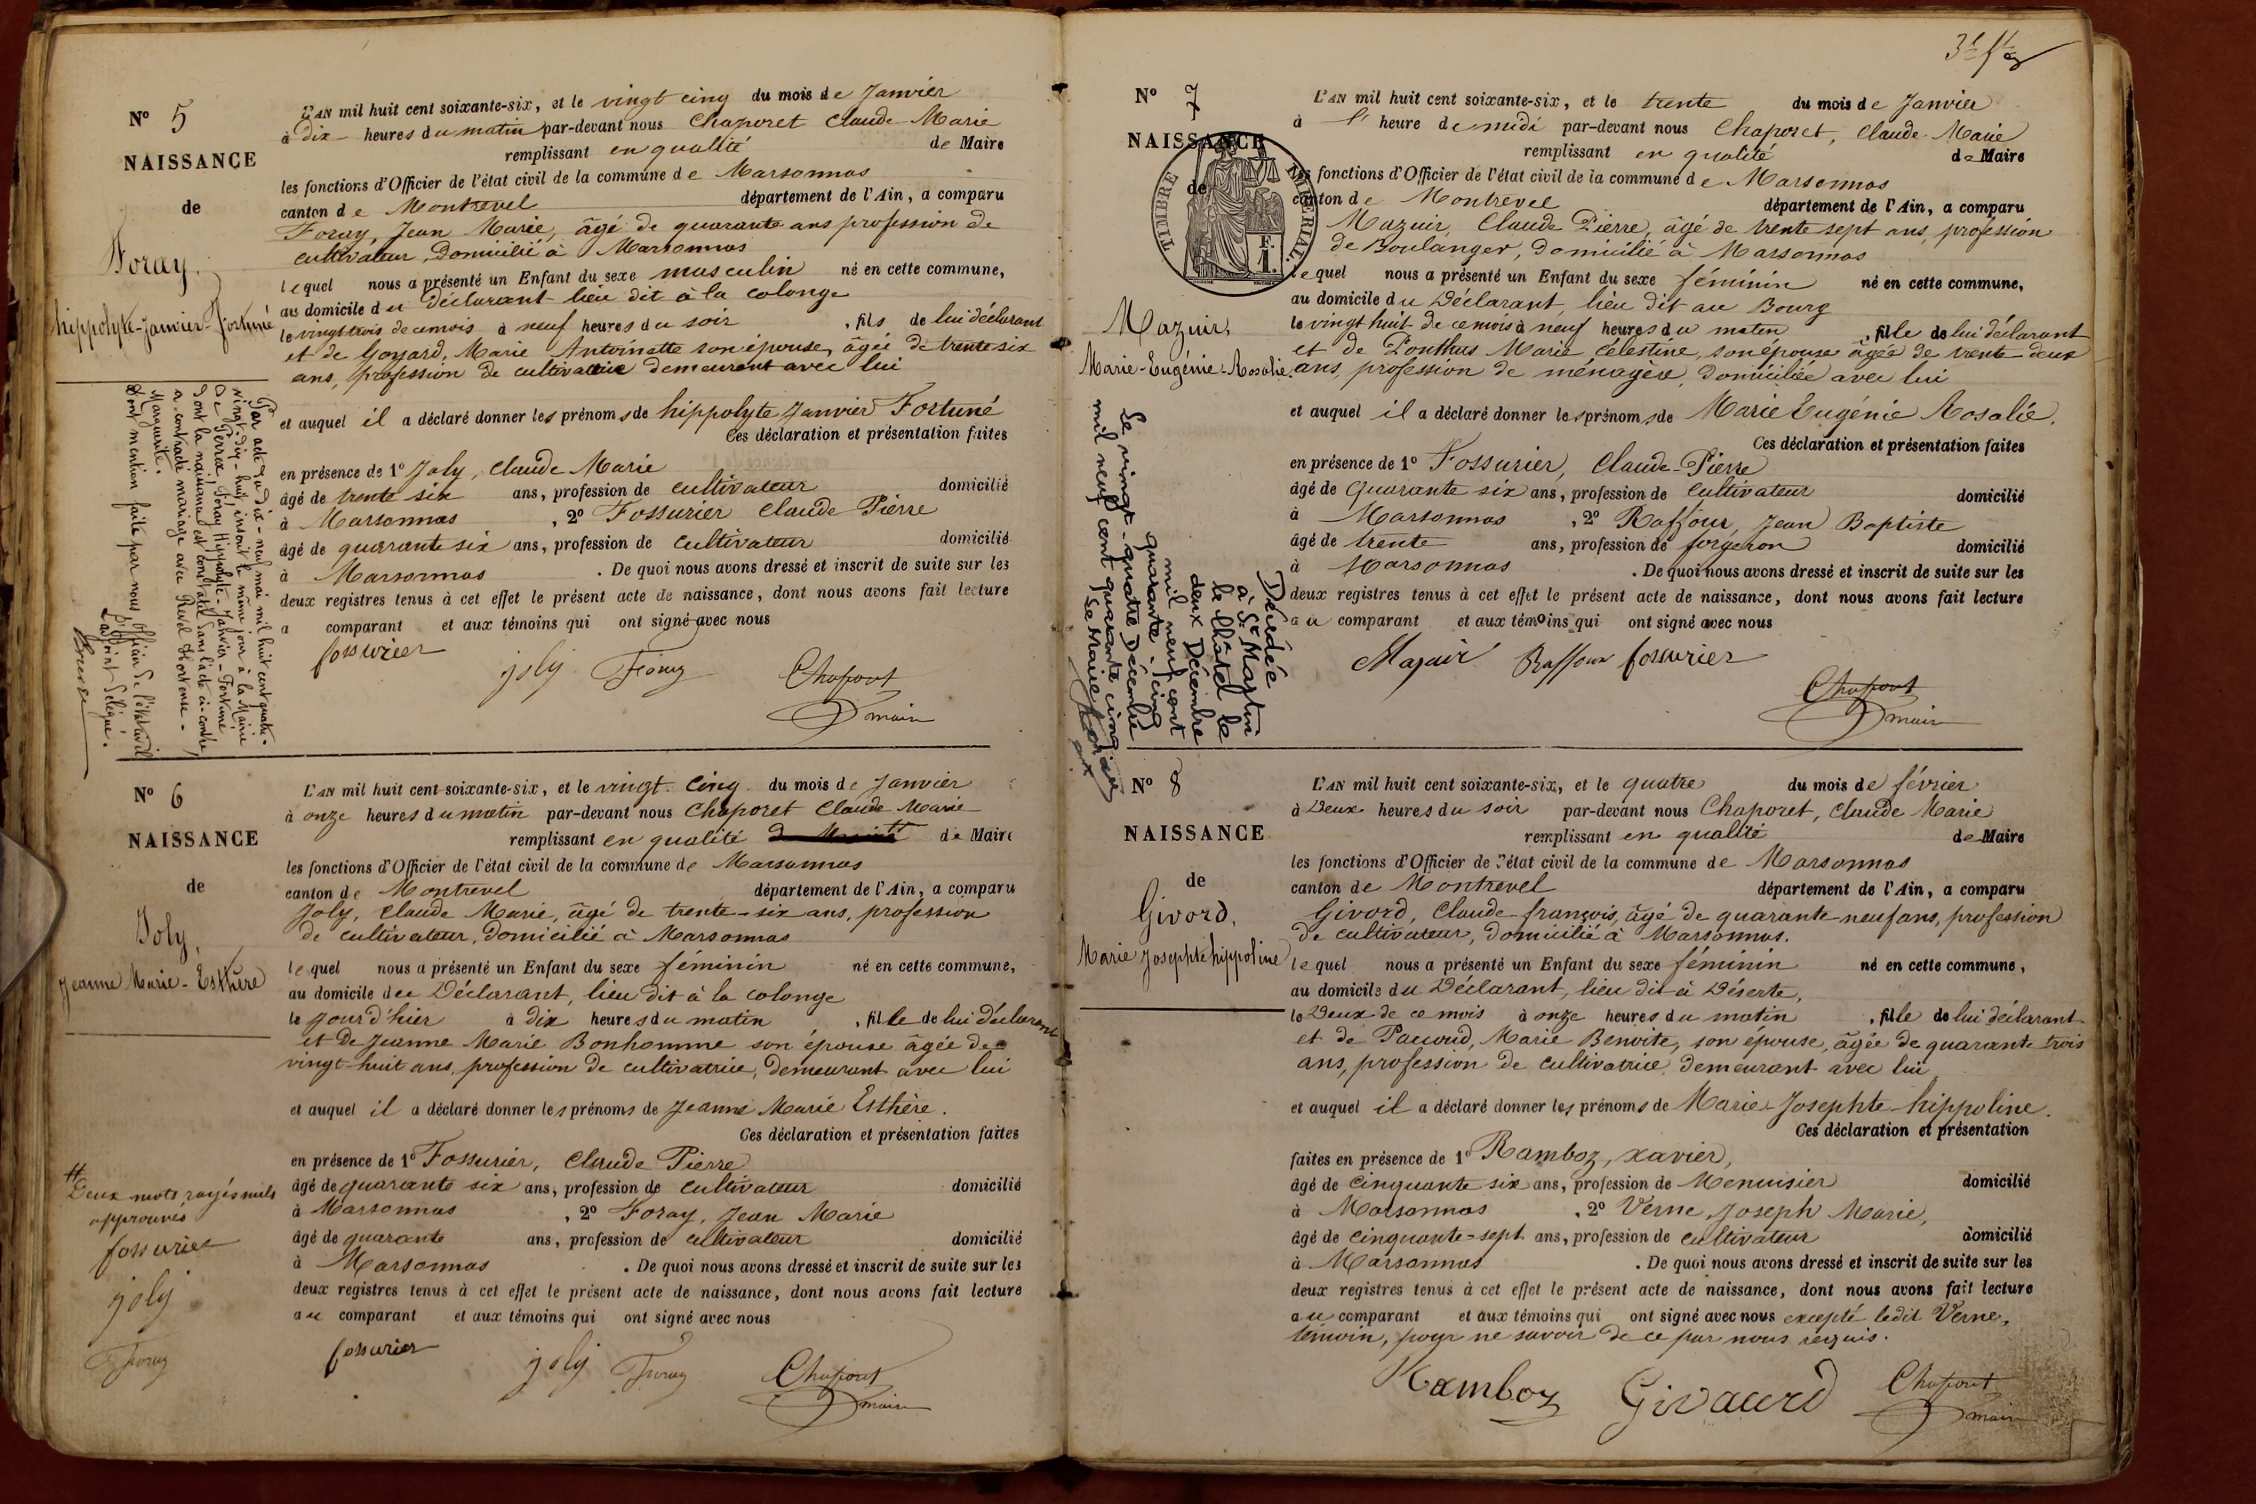 N° 5
NAISSANCE
de
Foray,
hippolyte-Janvier-Fortuné
L'AN mil huit cent soixante-six, et le vingt cinq du mois de Janvier
à Dix heures du matin par-devant nous Chaporet Claude Marie
remplissant en qualité de Maire
les fonctions d'Officier de l'état civil de la commune de Marsonnas
canton de Montrevel département de l'Ain, a comparu
Foray, Jean Marie, âgé de quarante ans profession de
cultivateur, Domicilié à Marsonnas
lequel nous a présenté un Enfant du sexe masculin né en cette commune,
au domicile du Déclarant lieu dit à la colonge
le vingt trois de ce mois à neuf heures du soir, fils de lui déclarant
et de Goyard, Marie Antoinette son épouse, âgée de trente six
ans, profession de cultivatrice demeurant avec lui
et auquel il a déclaré donner les prénoms de hippolyte Janvier Fortuné
Ces déclaration et présentation faites
en présence de 1° Joly, Claude Marie
âgé de trente six ans, profession de cultivateur domicilié
à Marsonnas, 2° Fossurier Claude Pierre
âgé de quarante six ans, profession de cultivateur domicilié
à Marsonnas. De quoi nous avons dressé et inscrit de suite sur les
deux registres tenus à cet effet le présent acte de naissance, dont nous avons fait lecture
a comparant et aux témoins qui ont signé avec nous
fossurier joly Foray Chaporet
maire
Par acte du dix-neuf mai mil huit cent quatre-
vingt-dix-huit, inscrit le même jour à la Mairie
de Perrex, Foray Hippolyte-Janvier-Fortuné
dont la naissance est constatée dans l'acte ci-contre,
a contracté mariage avec Revel Hortense-
Marguerite.
Dont mention faite par nous officier de l'état civil
L'adjoint délégué.
N° 6
NAISSANCE
de
Joly,
Jeanne Marie-Esthère
L'AN mil huit cent soixante-six, et le vingt-cinq du mois de Janvier
à onze heures du matin par-devant nous Chaporet Claude Marie
remplissant en qualité de Maire
les fonctions d'Officier de l'état civil de la commune de Marsonnas
canton de Montrevel département de l'Ain, a comparu
Joly, Claude Marie, âgé de trente-six ans, profession
de cultivateur, domicilié à Marsonnas
lequel nous a présenté un Enfant du sexe féminin né en cette commune,
au domicile du Déclarant, lieu dit à la colonge
le jour d'hier à dix heures du matin, fille de lui déclarant
et de Jeanne Marie Bonhomme son épouse âgée de
vingt-huit ans, profession de cultivatrice, demeurant avec lui
et auquel il a déclaré donner les prénoms de Jeanne Marie Esthère.
Ces déclaration et présentation faites
en présence de 1° Fossurier, Claude Pierre
âgé de quarante six ans, profession de cultivateur domicilié
à Marsonnas, 2° Foray, Jean Marie
âgé de quarante ans, profession de cultivateur domicilié
à Marsonnas. De quoi nous avons dressé et inscrit de suite sur les
deux registres tenus à cet effet le présent acte de naissance, dont nous avons fait lecture
au comparant et aux témoins qui ont signé avec nous
fossurier joly Foray Chaporet
maire
Deux mots rayés nuls
approuvés
fossurier
joly
Foray
N° 7
NAISSANCE
de
TIMBRE IMPERIAL.
Mazuir,
Marie-Eugénie-Rosalie.
L'AN mil huit cent soixante-six, et le trente du mois de Janvier
à l' heure de midi par-devant nous Chaporet, Claude Marie
remplissant en qualité de Maire
les fonctions d'Officier de l'état civil de la commune de Marsonnas
canton de Montrevel département de l'Ain, a comparu
Mazuir, Claude Pierre, âgé de trente sept ans, profession
de Boulanger, domicilié à Marsonnas
lequel nous a présenté un Enfant du sexe féminin né en cette commune,
au domicile du Déclarant, lieu dit au Bourg
le vingt huit de ce mois à neuf heures du matin, fille de lui déclarant
et de Ponthus Marie Célestine, son épouse âgée de trente deux
ans, profession de ménagère, domiciliée avec lui
et auquel il a déclaré donner les prénoms de Marie Eugénie Rosalie.
Ces déclaration et présentation faites
en présence de 1° Fossurier, Claude-Pierre
âgé de quarante six ans, profession de cultivateur domicilié
à Marsonnas, 2° Raffour, Jean Baptiste
âgé de trente ans, profession de forgeron domicilié
à Marsonnas. De quoi nous avons dressé et inscrit de suite sur les
deux registres tenus à cet effet le présent acte de naissance, dont nous avons fait lecture
au comparant et aux témoins qui ont signé avec nous
Mazuir Raffour fossurier
Chaporet
maire
Décédée
à St Martin
le Châtel le
deux Décembre
mil neuf cent
quarante-cinq
Le vingt-quatre Décembre
mil neuf cent quarante cinq
Le Maire
N° 8
NAISSANCE
de
Givord,
Marie Josephte hippoline
L'AN mil huit cent soixante-six, et le quatre du mois de février
à Deux heures du soir par-devant nous Chaporet, Claude Marie
remplissant en qualité de Maire
les fonctions d'Officier de l'état civil de la commune de Marsonnas
canton de Montrevel département de l'Ain, a comparu
Givord, Claude-françois, âgé de quarante-neuf ans, profession
de cultivateur, domicilié à Marsonnas.
lequel nous a présenté un Enfant du sexe féminin né en cette commune,
au domicile du Déclarant, lieu dit à Déserte,
le Deux de ce mois à onze heures du matin, fille de lui déclarant
et de Pacoud, Marie Benoite, son épouse, âgée de quarante trois
ans, profession de cultivatrice demeurant avec lui
et auquel il a déclaré donner les prénoms de Marie-Josephte-hippoline.
Ces déclaration et présentation
faites en présence de 1° Ramboz, xavier,
âgé de cinquante six ans, profession de Menuisier domicilié
à Marsonnas, 2° Verne, Joseph Marie,
âgé de cinquante-sept ans, profession de cultivateur domicilié
à Marsonnas. De quoi nous avons dressé et inscrit de suite sur les
deux registres tenus à cet effet le présent acte de naissance, dont nous avons fait lecture
au comparant et aux témoins qui ont signé avec nous excepté ledit Verne,
témoin, pour ne savoir de ce par nous requis.
Ramboz Givaurd Chaporet
maire